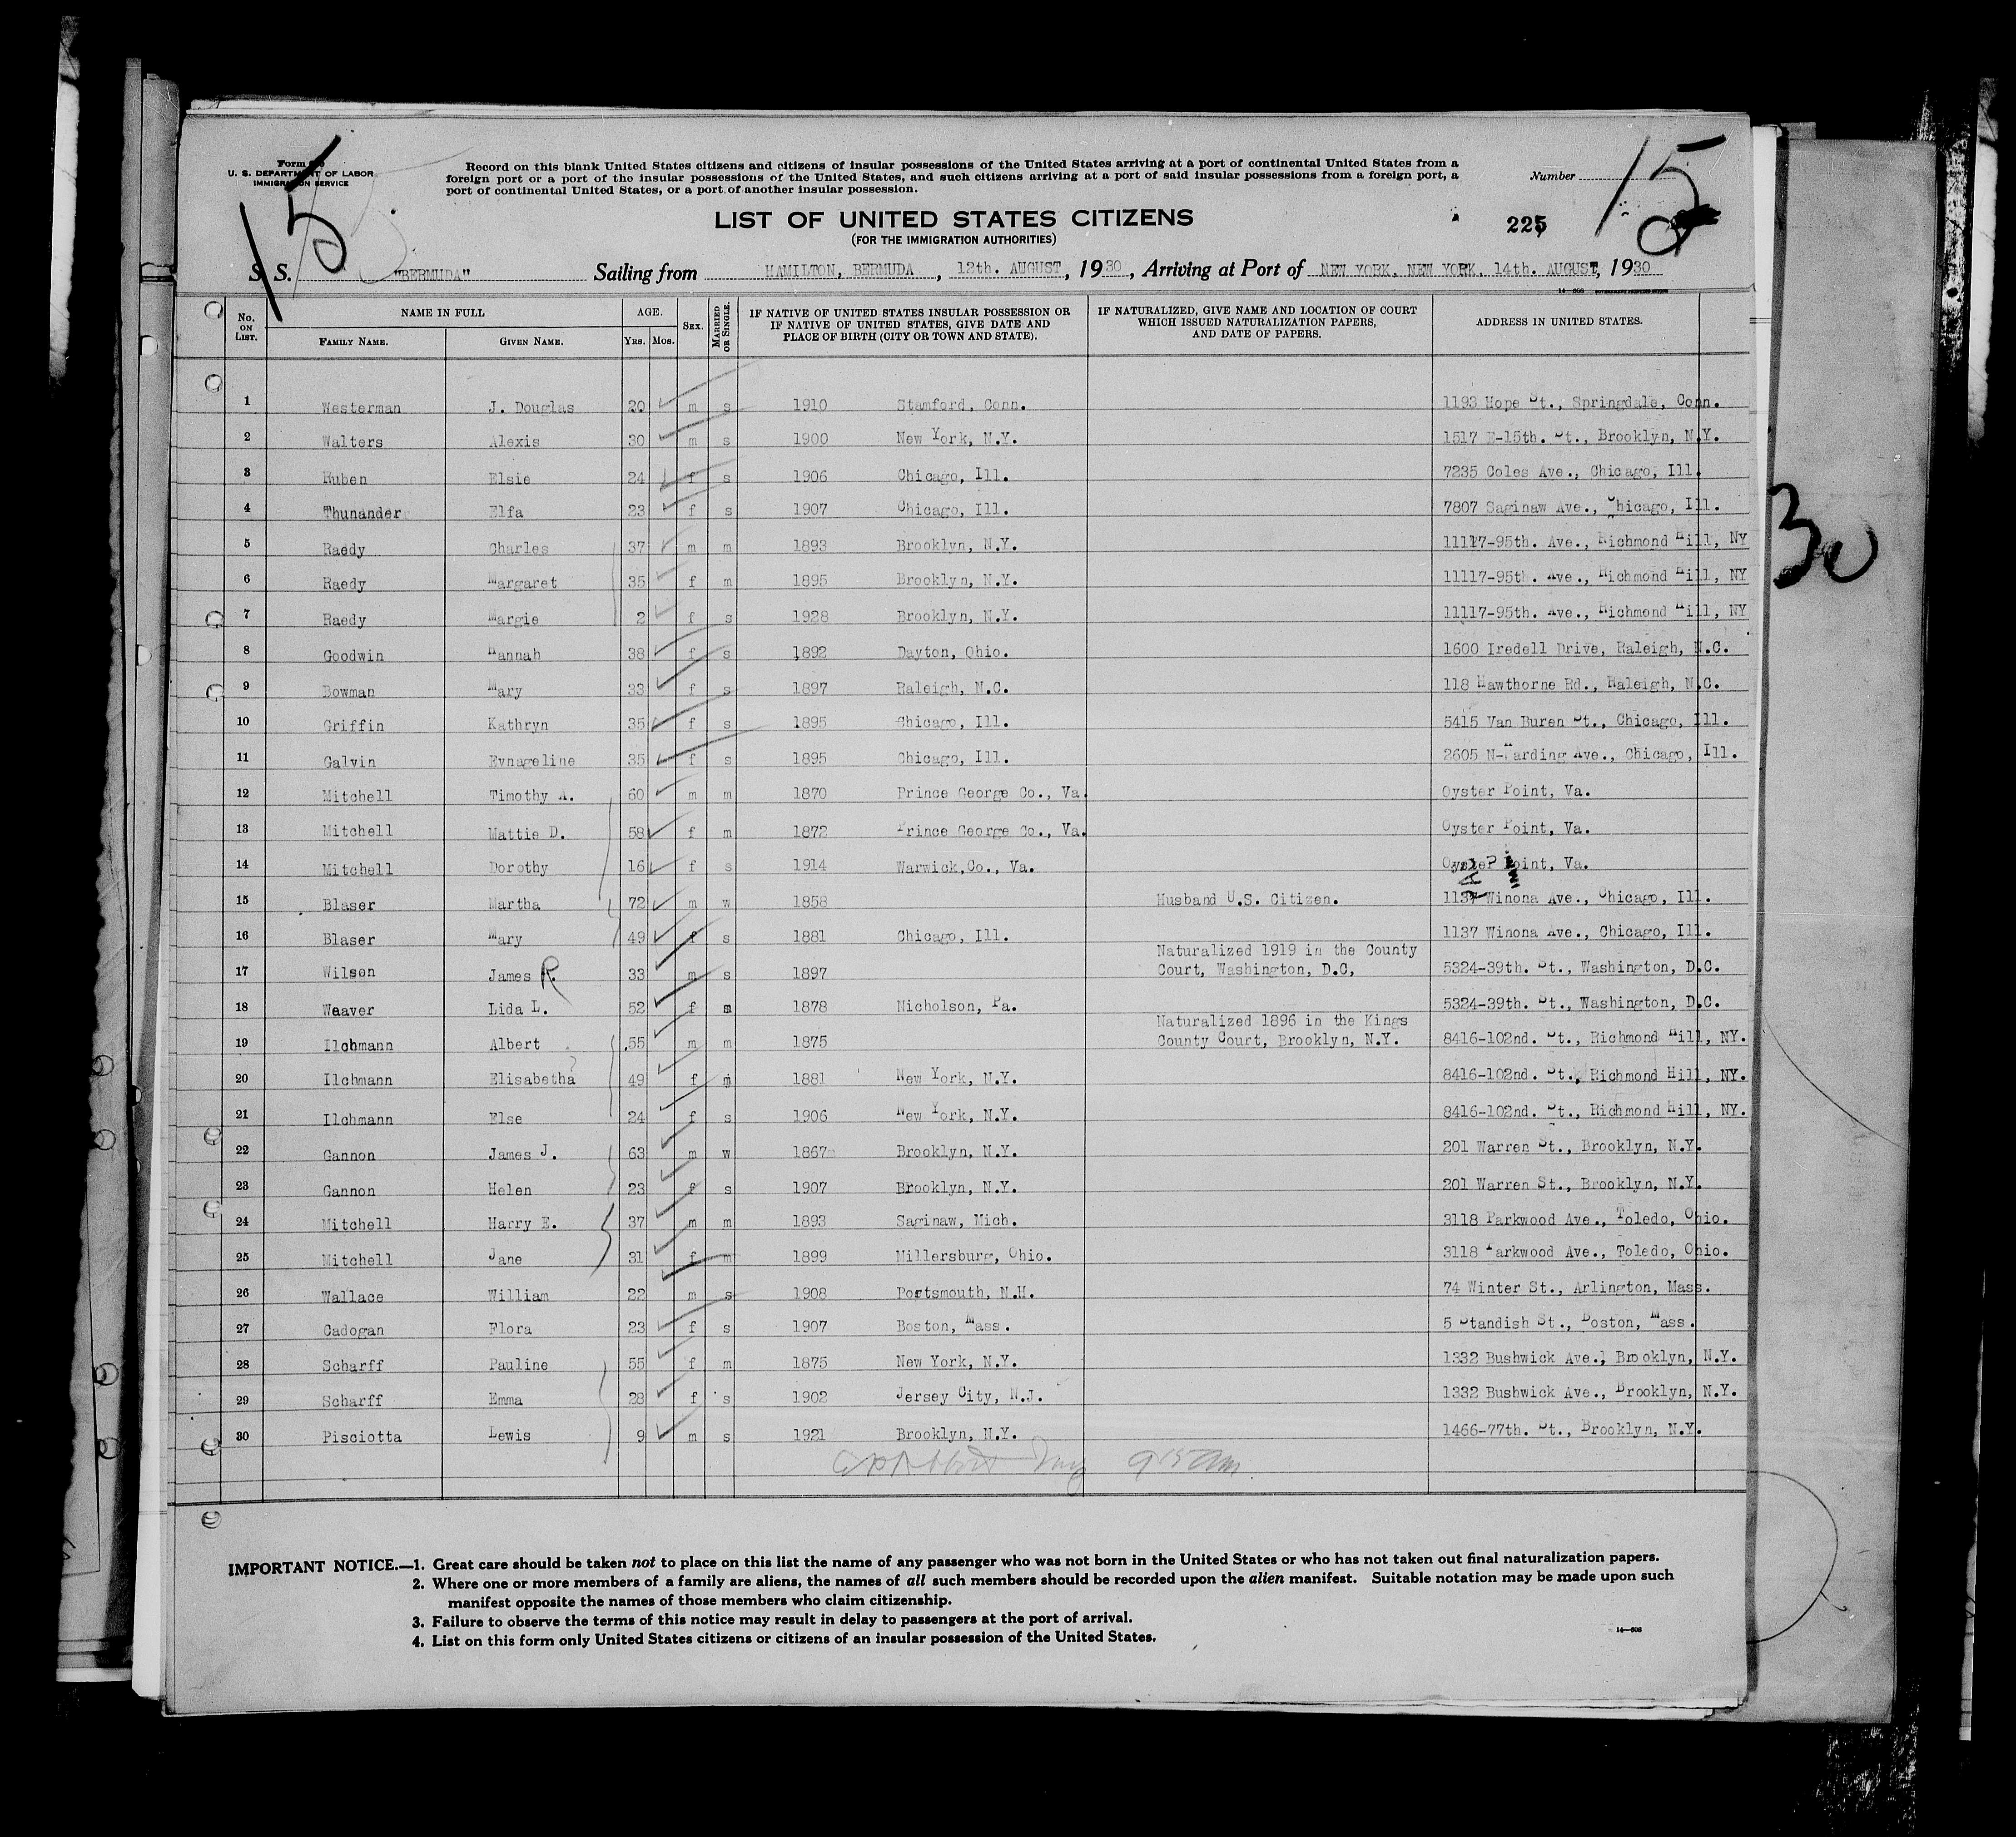 Form
U. S. DEPARTMENT OF LABOR
IMMIGRATION SERVICE
15
Record on this blank United States citizens and citizens of insular possessions of the United States arriving at a port of continental United States from a
foreign port or a port of the insular possessions of the United States, and such citizens arriving at a port of said insular possessions from a foreign port, a
port of continental United States, or a port of another insular possession.
Number
15
LIST OF UNITED STATES CITIZENS
(FOR THE IMMIGRATION AUTHORITIES)
225
S. S. "BERMUDA" Sailing from HAMILTON, BERMUDA, 12th. AUGUST, 1930, Arriving at Port of NEW YORK, NEW YORK, 14th. AUGUST, 1930
No. ON LIST. NAME IN FULL FAMILY NAME. GIVEN NAME. AGE. YRS. MOS. SEX. MARRIED OR SINGLE. IF NATIVE OF UNITED STATES INSULAR POSSESSION OR IF NATIVE OF UNITED STATES, GIVE DATE AND PLACE OF BIRTH (CITY OR TOWN AND STATE). IF NATURALIZED, GIVE NAME AND LOCATION OF COURT WHICH ISSUED NATURALIZATION PAPERS, AND DATE OF PAPERS. ADDRESS IN UNITED STATES.
1 Westerman J. Douglas 20 m s 1910 Stamford, Conn. 1193 Hope St., Springdale, Conn.
2 Walters Alexis 30 m s 1900 New York, N.Y. 1517 E-15th. St., Brooklyn, N.Y.
3 Huben Elsie 24 f s 1906 Chicago, Ill. 7235 Coles Ave., Chicago, Ill.
4 Thunander Elfa 23 f s 1907 Chicago, Ill. 7807 Saginaw Ave., Chicago, Ill.
5 Raedy Charles 37 m m 1893 Brooklyn, N.Y. 11117-95th. Ave., Richmond Hill, NY
6 Raedy Margaret 35 f m 1895 Brooklyn, N.Y. 11117-95th. Ave., Richmond Hill, NY
7 Raedy Margie 2 f s 1928 Brooklyn, N.Y. 11117-95th. Ave., Richmond Hill, NY
8 Goodwin Hannah 38 f s 1892 Dayton, Ohio. 1600 Iredell Drive, Raleigh, N.C.
9 Bowman Mary 33 f s 1897 Raleigh, N.C. 118 Hawthorne Rd., Raleigh, N.C.
10 Griffin Kathryn 35 f s 1895 Chicago, Ill. 5415 Van Buren St., Chicago, Ill.
11 Galvin Evnageline 35 f s 1895 Chicago, Ill. 2605 N-Harding Ave., Chicago, Ill.
12 Mitchell Timothy A. 60 m m 1870 Prince George Co., Va. Oyster Point, Va.
13 Mitchell Mattie D. 58 f m 1872 Prince George Co., Va. Oyster Point, Va.
14 Mitchell Dorothy 16 f s 1914 Warwick,Co., Va. Oyster Point, Va.
15 Blaser Martha 72 m w 1858 Husband U.S. Citizen. 1137 Winona Ave., Chicago, Ill.
16 Blaser Mary 49 f s 1881 Chicago, Ill. 1137 Winona Ave., Chicago, Ill.
17 Wilson James R. 33 m s 1897 Naturalized 1919 in the County Court, Washington, D.C, 5324-39th. St., Washington, D.C.
18 Weaver Lida L. 52 f m 1878 Nicholson, Pa. 5324-39th. St., Washington, D.C.
19 Ilchmann Albert 55 m m 1875 Naturalized 1896 in the Kings County Court, Brooklyn, N.Y. 8416-102nd. St., Richmond Hill, NY.
20 Ilchmann Elisabetha 49 f m 1881 New York, N.Y. 8416-102nd. St., Richmond Hill, NY.
21 Ilchmann Else 24 f s 1906 New York, N.Y. 8416-102nd. St., Richmond Hill, NY.
22 Gannon James J. 63 m w 1867 Brooklyn, N.Y. 201 Warren St., Brooklyn, N.Y.
23 Gannon Helen 23 f s 1907 Brooklyn, N.Y. 201 Warren St., Brooklyn, N.Y.
24 Mitchell Harry E. 37 m m 1893 Saginaw, Mich. 3118 Parkwood Ave., Toledo, Ohio.
25 Mitchell Jane 31 f m 1899 Millersburg, Ohio. 3118 Parkwood Ave., Toledo, Ohio.
26 Wallace William 22 m s 1908 Portsmouth, N.H. 74 Winter St., Arlington, Mass.
27 Cadogan Flora 23 f s 1907 Boston, Mass. 5 Standish St., Boston, Mass.
28 Scharff Pauline 55 f m 1875 New York, N.Y. 1332 Bushwick Ave., Brooklyn, N.Y.
29 Scharff Emma 28 f s 1902 Jersey City, N.J. 1332 Bushwick Ave., Brooklyn, N.Y.
30 Pisciotta Lewis 9 m s 1921 Brooklyn, N.Y. 1466-77th. St., Brooklyn, N.Y.
915 am
30
IMPORTANT NOTICE.—1. Great care should be taken not to place on this list the name of any passenger who was not born in the United States or who has not taken out final naturalization papers.
2. Where one or more members of a family are aliens, the names of all such members should be recorded upon the alien manifest. Suitable notation may be made upon such
manifest opposite the names of those members who claim citizenship.
3. Failure to observe the terms of this notice may result in delay to passengers at the port of arrival.
4. List on this form only United States citizens or citizens of an insular possession of the United States.
14—608